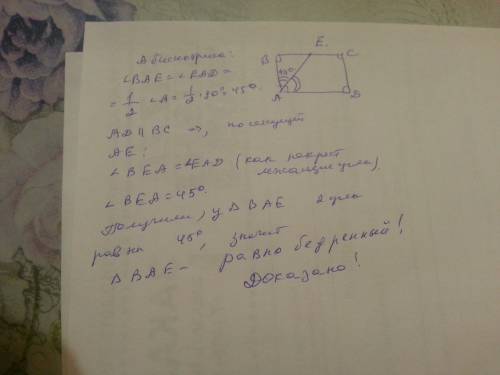 А биссектриса:
∠BAE = ∠EAD =
= 1/2 ∠A = 1/2 · 90° = 45°.
AD || BC =>, по секущей
AE:
∠BEA = ∠EAD (как накрест
лежащие углы).
∠BEA = 45°.
Получили, у △BAE 2 угла
равны 45°, значит
△BAE - равнобедренный!
Доказано!
E.
B C
45°
A D